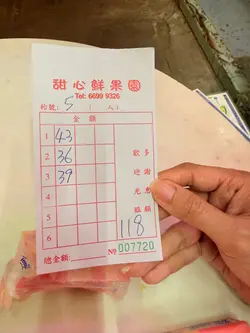 甜心鮮果園
Tel: 6699 9326
枱號: 5 人:
金額
1 43
2 36
3 39
4
5
6
多謝惠顧
歡迎光臨
118
總金額:
№ 007720